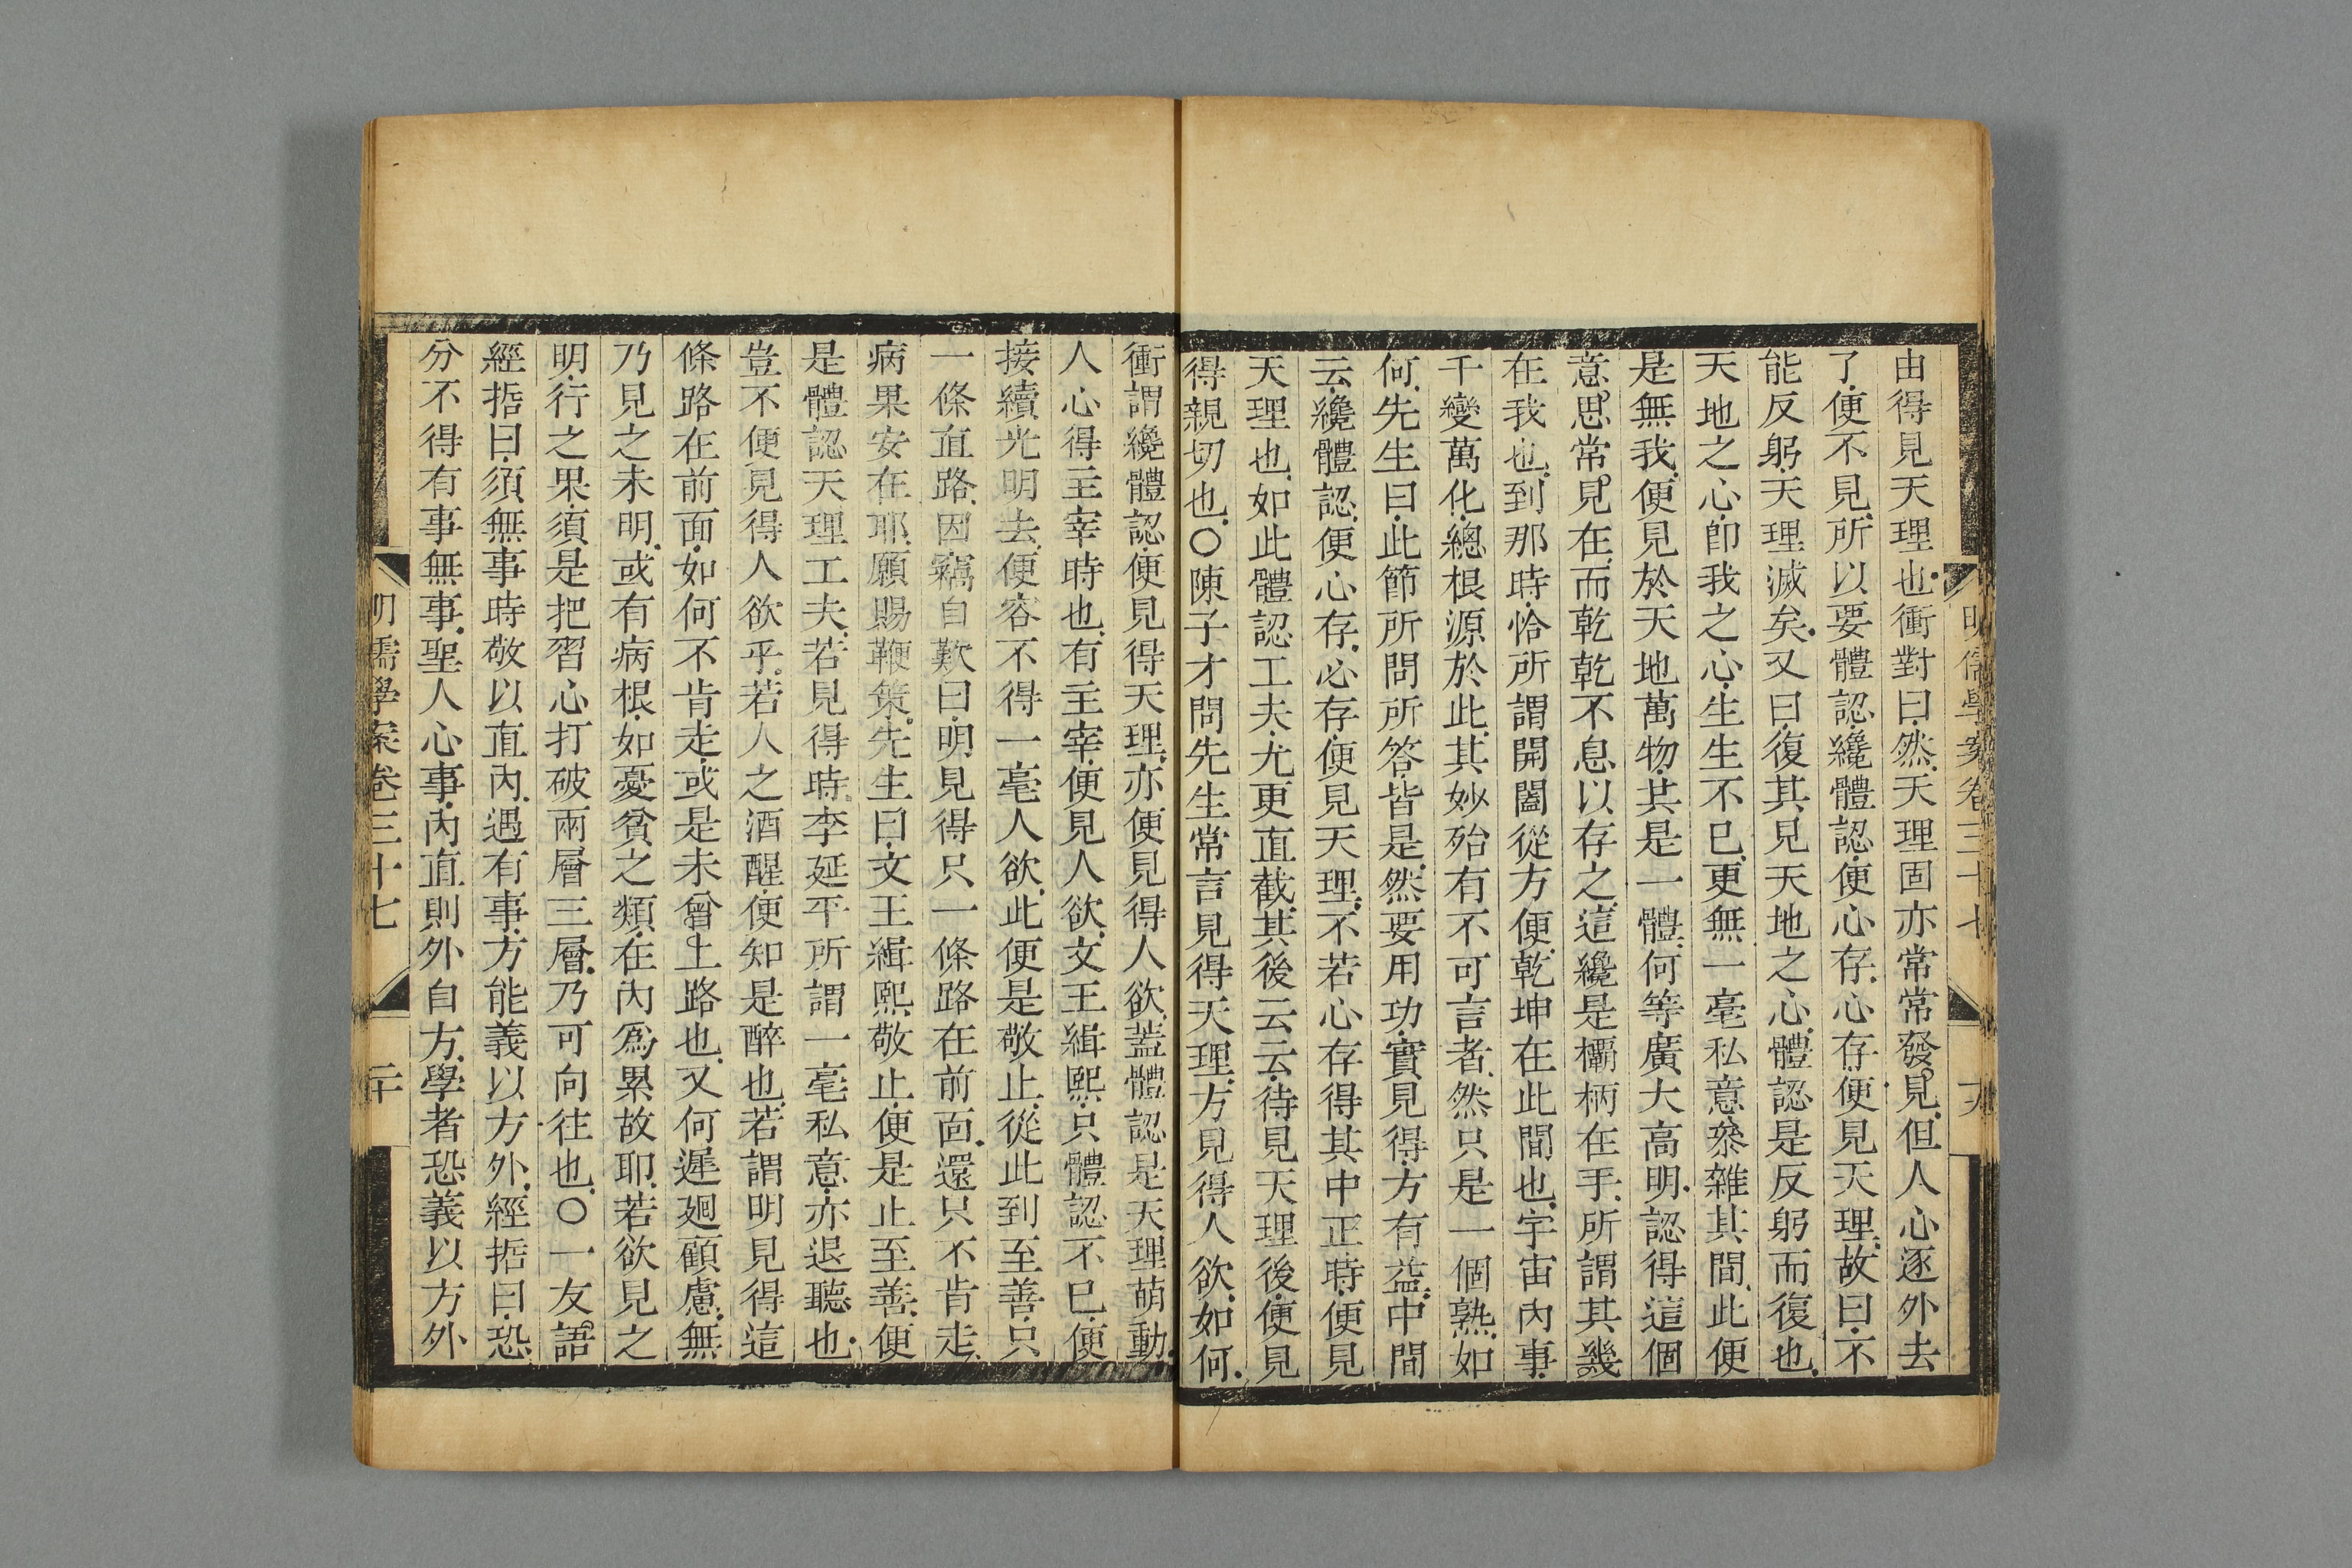 明儒學案卷三十七
由得見天理也衝對曰然天理固亦常常發見但人心逐外去
了便不見所以要體認纔體認便心存心存便見天理故曰不
能反躬天理滅矣又曰復其見天地之心體認是反躬而復也
天地之心卽我之心生生不已更無一毫私意叅雜其間此便
是無我便見於天地萬物共是一體何等廣大高明認得這個
意思常見在而乾乾不息以存之這纔是欛柄在手所謂其幾
在我也到那時恰所謂開闔從方便乾坤在此間也宇宙內事
千變萬化總根源於此其妙殆有不可言者然只是一個熟如
何先生曰此節所問所答皆是然要用功實見得方有益中間
云纔體認便心存心存便見天理不若心存得其中正時便見
天理也如此體認工夫尤更直截其後云云待見天理後便見
得親切也○陳子才問先生常言見得天理方見得人欲如何
衝謂纔體認便見得天理亦便見得人欲蓋體認是天理萌動
人心得主宰時也有主宰便見人欲文王緝熙只體認不已便
接續光明去便容不得一毫人欲此便是敬止從此到至善只
一條直路因竊自歎曰明見得只一條路在前面還只不肯走
病果安在耶願賜鞭策先生曰文王緝熙敬止便是止至善便
是體認天理工夫若見得時李延平所謂一毫私意亦退聽也
豈不便見得人欲乎若人之酒醒便知是醉也若謂明見得這
條路在前面如何不肯走或是未曾上路也又何遲廻顧慮無
乃見之未明或有病根如憂貧之類在內爲累故耶若欲見之
明行之果須是把習心打破兩層三層乃可向往也○一友語
經掋曰須無事時敬以直內遇有事方能義以方外經掋曰恐
分不得有事無事聖人心事內直則外自方學者恐義以方外
明儒學案卷三十七
二十